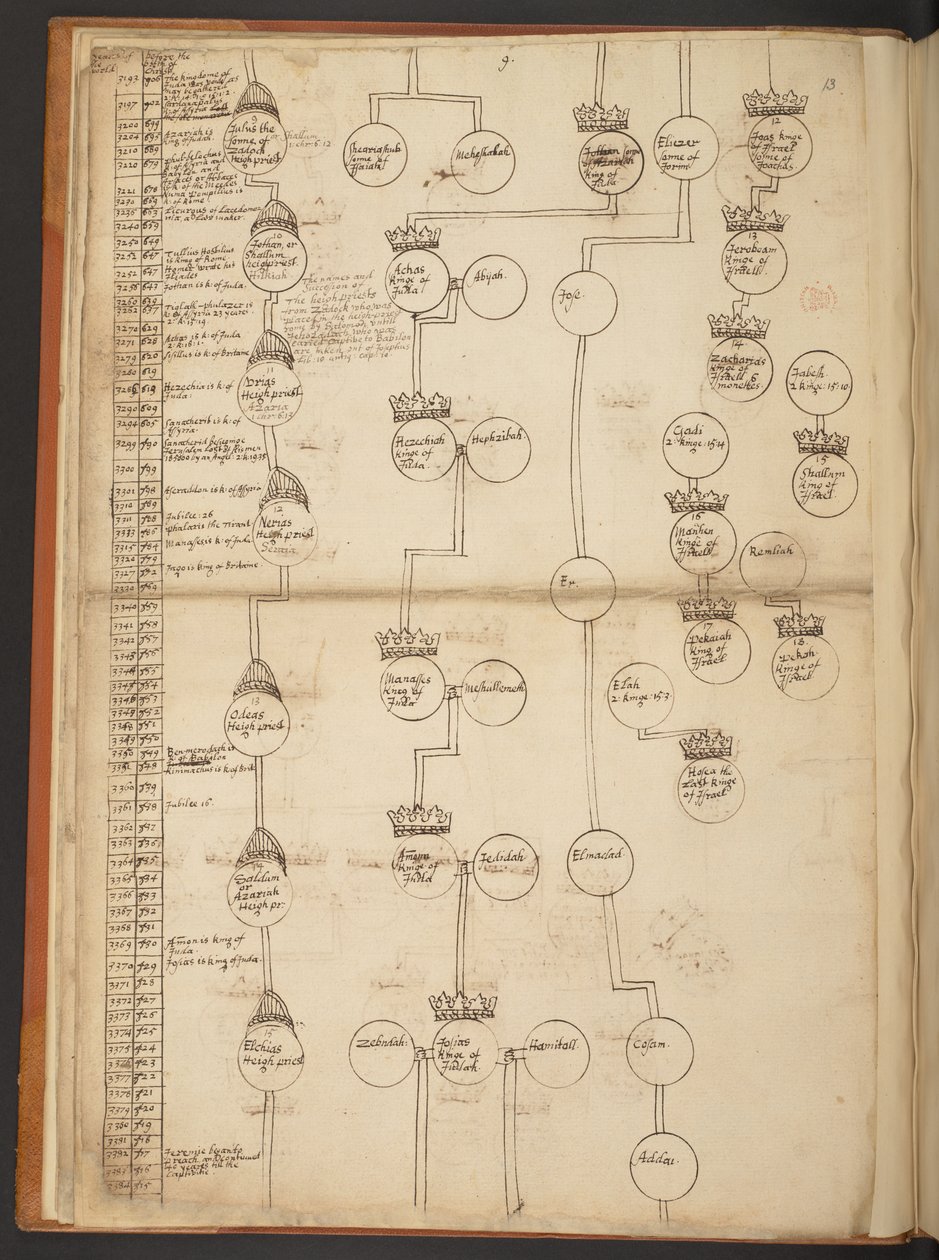 9.
13
years of the world
before the birth of Christ
3193 906
The kingdome of
Juda
may be gathered
3197 902
Sardanapalus
k: of Assyria
3200 899
3204 895
Azariah is
king of Judah.
3210 889
3220 879
Phul-belochus
k: of Assyria and
Babylon and
Arbaces
k: of the Meedes
3221 878
Numa Pompilius is
k: of Rome.
3230 869
3236 863
Licurgus of Lacedemo
nia, a Law maker.
3240 859
3250 849
3252 847
Tullius Hostilius
is king of Rome
Homer wrote his
Iliades
3252 847
3256 843
Jothan is k: of Juda.
3260 839
3262 837
Tiglath-phulazer is
k: of Assyria 23 yeares.
2: k: 15:19
3270 829
3271 828
Achas is k: of Juda
2: k: 16: 1.
3279 820
Sisillus is k: of Britane
3280 819
Hezechia is k: of
Juda:
3290 809
3294 805
Sanacherib is k: of
Assyria.
3299 790
Sanacherid besieginge
Jerusalem Lost of his men
185000 by an Angel: 2: k: 19:35
3300 799
3301 798
Aseraddon is k: of Assyria
Jubilee: 26
Phalaris the Tirant
3315 784
Manasses is k: of Juda
3320 779
3327
Jago is king of Britane
3330 769
3340 759
3341 758
3342 757
Ben-merodach is
k: of Babilon
Kinimachus is k: of Brit
3360 739
3361 738
Jubilee 16.
3362 737
3363 736
3364 735
3365 734
3366 733
3367 732
3368 731
3369 730
Amon is king of
Juda.
3370 729
Josias is king of Juda.
3371 728
3372 727
3373 726
3374 725
3375 724
3376 723
3377 722
3378 721
3379 720
3380 719
3381 718
3382 717
Jeremie began to
preach and continued
40 yeares till the
Captivitie
3383 716
3384 715
9
Julus the
sonne of
Zadock
Heigh priest
or Shallum
1: chr: 6: 12
10
Jothan, or
Shallum
heigh priest.
Hilkiah
The names and
Succession of
The heigh priests
from Zadock who was
placed in the heigh-pries
rome by Salomon, untill
Jehozadach, who was
caried captive to Babilon
are taken out of Josephus
Lib: 10 antiq: cap: 10
11
Vrias
Heigh priest
Azaria
1 chr: 6: 13
12
Nerias
Heigh priest
Seraia.
13
Odeas
Heigh priest
14
Saldum
or
Azariah
Heigh pr:
15
Elchias
Heigh priest
Sheariashub
sonne of
Isaiah
Meheshalah
Jothan sonne
of Azariah
king of
Juda.
Achas
kinge of
Juda
Abijah.
Hezechiah
kinge of
Juda.
Hephzibah
Manasses
king of
Juda
Meshullemeth
Amonn
kinge of
Juda
Jedidah
Zebudah:
Josias
kinge of
Judah.
Hamitall.
Eliezer
sonne of
Jorim.
Jose.
Er.
Elmadad.
Cosam.
Addai.
12
Joas kinge
of Israel
sonne of
Joachas
13
Jeroboam
kinge of
Israell.
14
Zacharias
kinge of
Israell 6
monethes.
Jabesh.
2 kinge: 15: 10
15
Shallum
king of
Israel.
Gadi
2: kinge: 15: 14
16
Manhen
kinge of
Israell.
Remliah
17
Pekaiah
king of
Israel
18.
Pekah
kinge of
Israel
Elah
2: kinge: 15: 3
Hosea the
Last kinge
of Israel